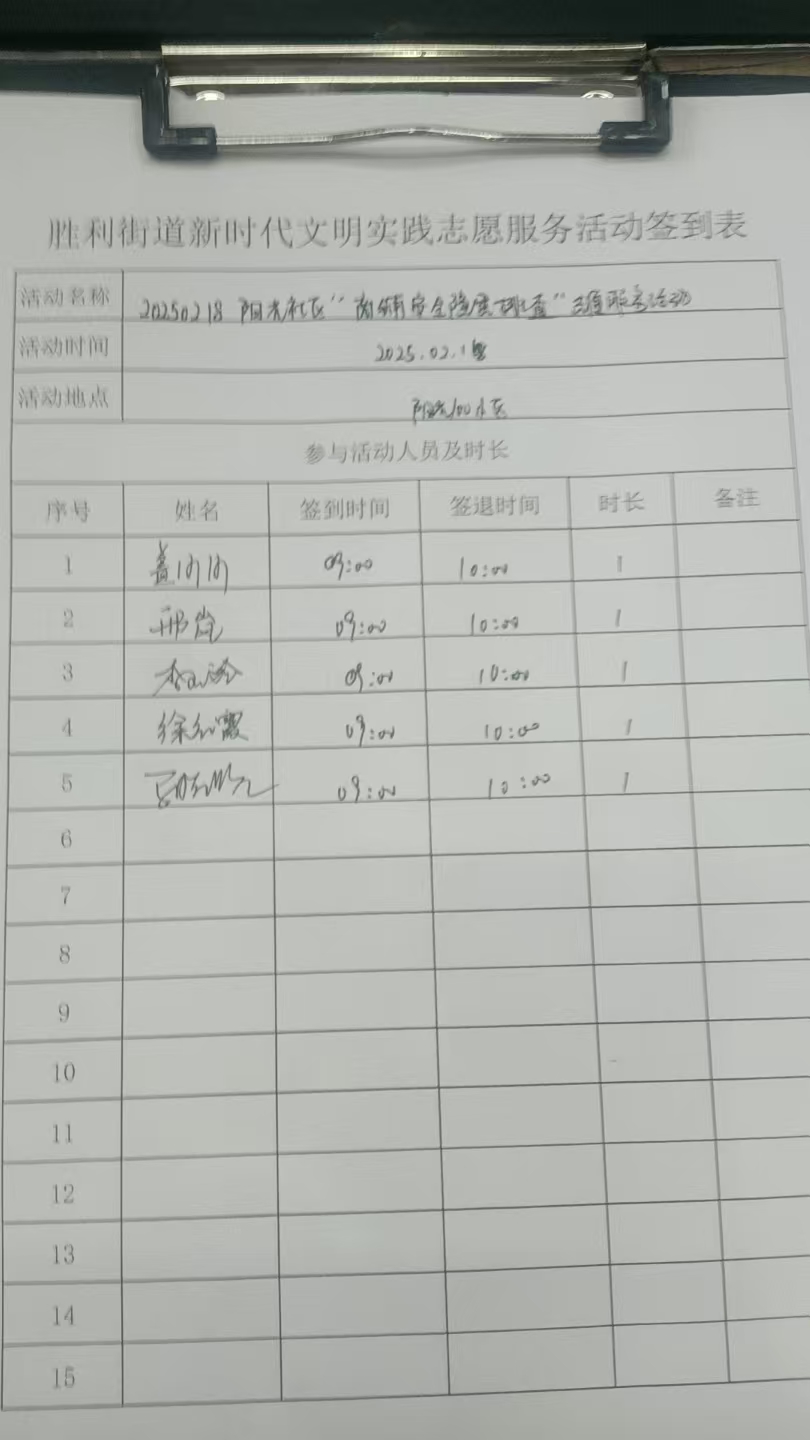 胜利街道新时代文明实践志愿服务活动签到表
活动名称 20250218 阳光社区“商铺安全隐患排查”志愿服务活动
活动时间 2025.02.18
活动地点 阳光100小区
参与活动人员及时长
序号 姓名 签到时间 签退时间 时长 备注
1 09:00 10:00 1
2 09:00 10:00 1
3 09:00 10:00 1
4 徐红霞 09:00 10:00 1
5 09:00 10:00 1
6
7
8
9
10
11
12
13
14
15